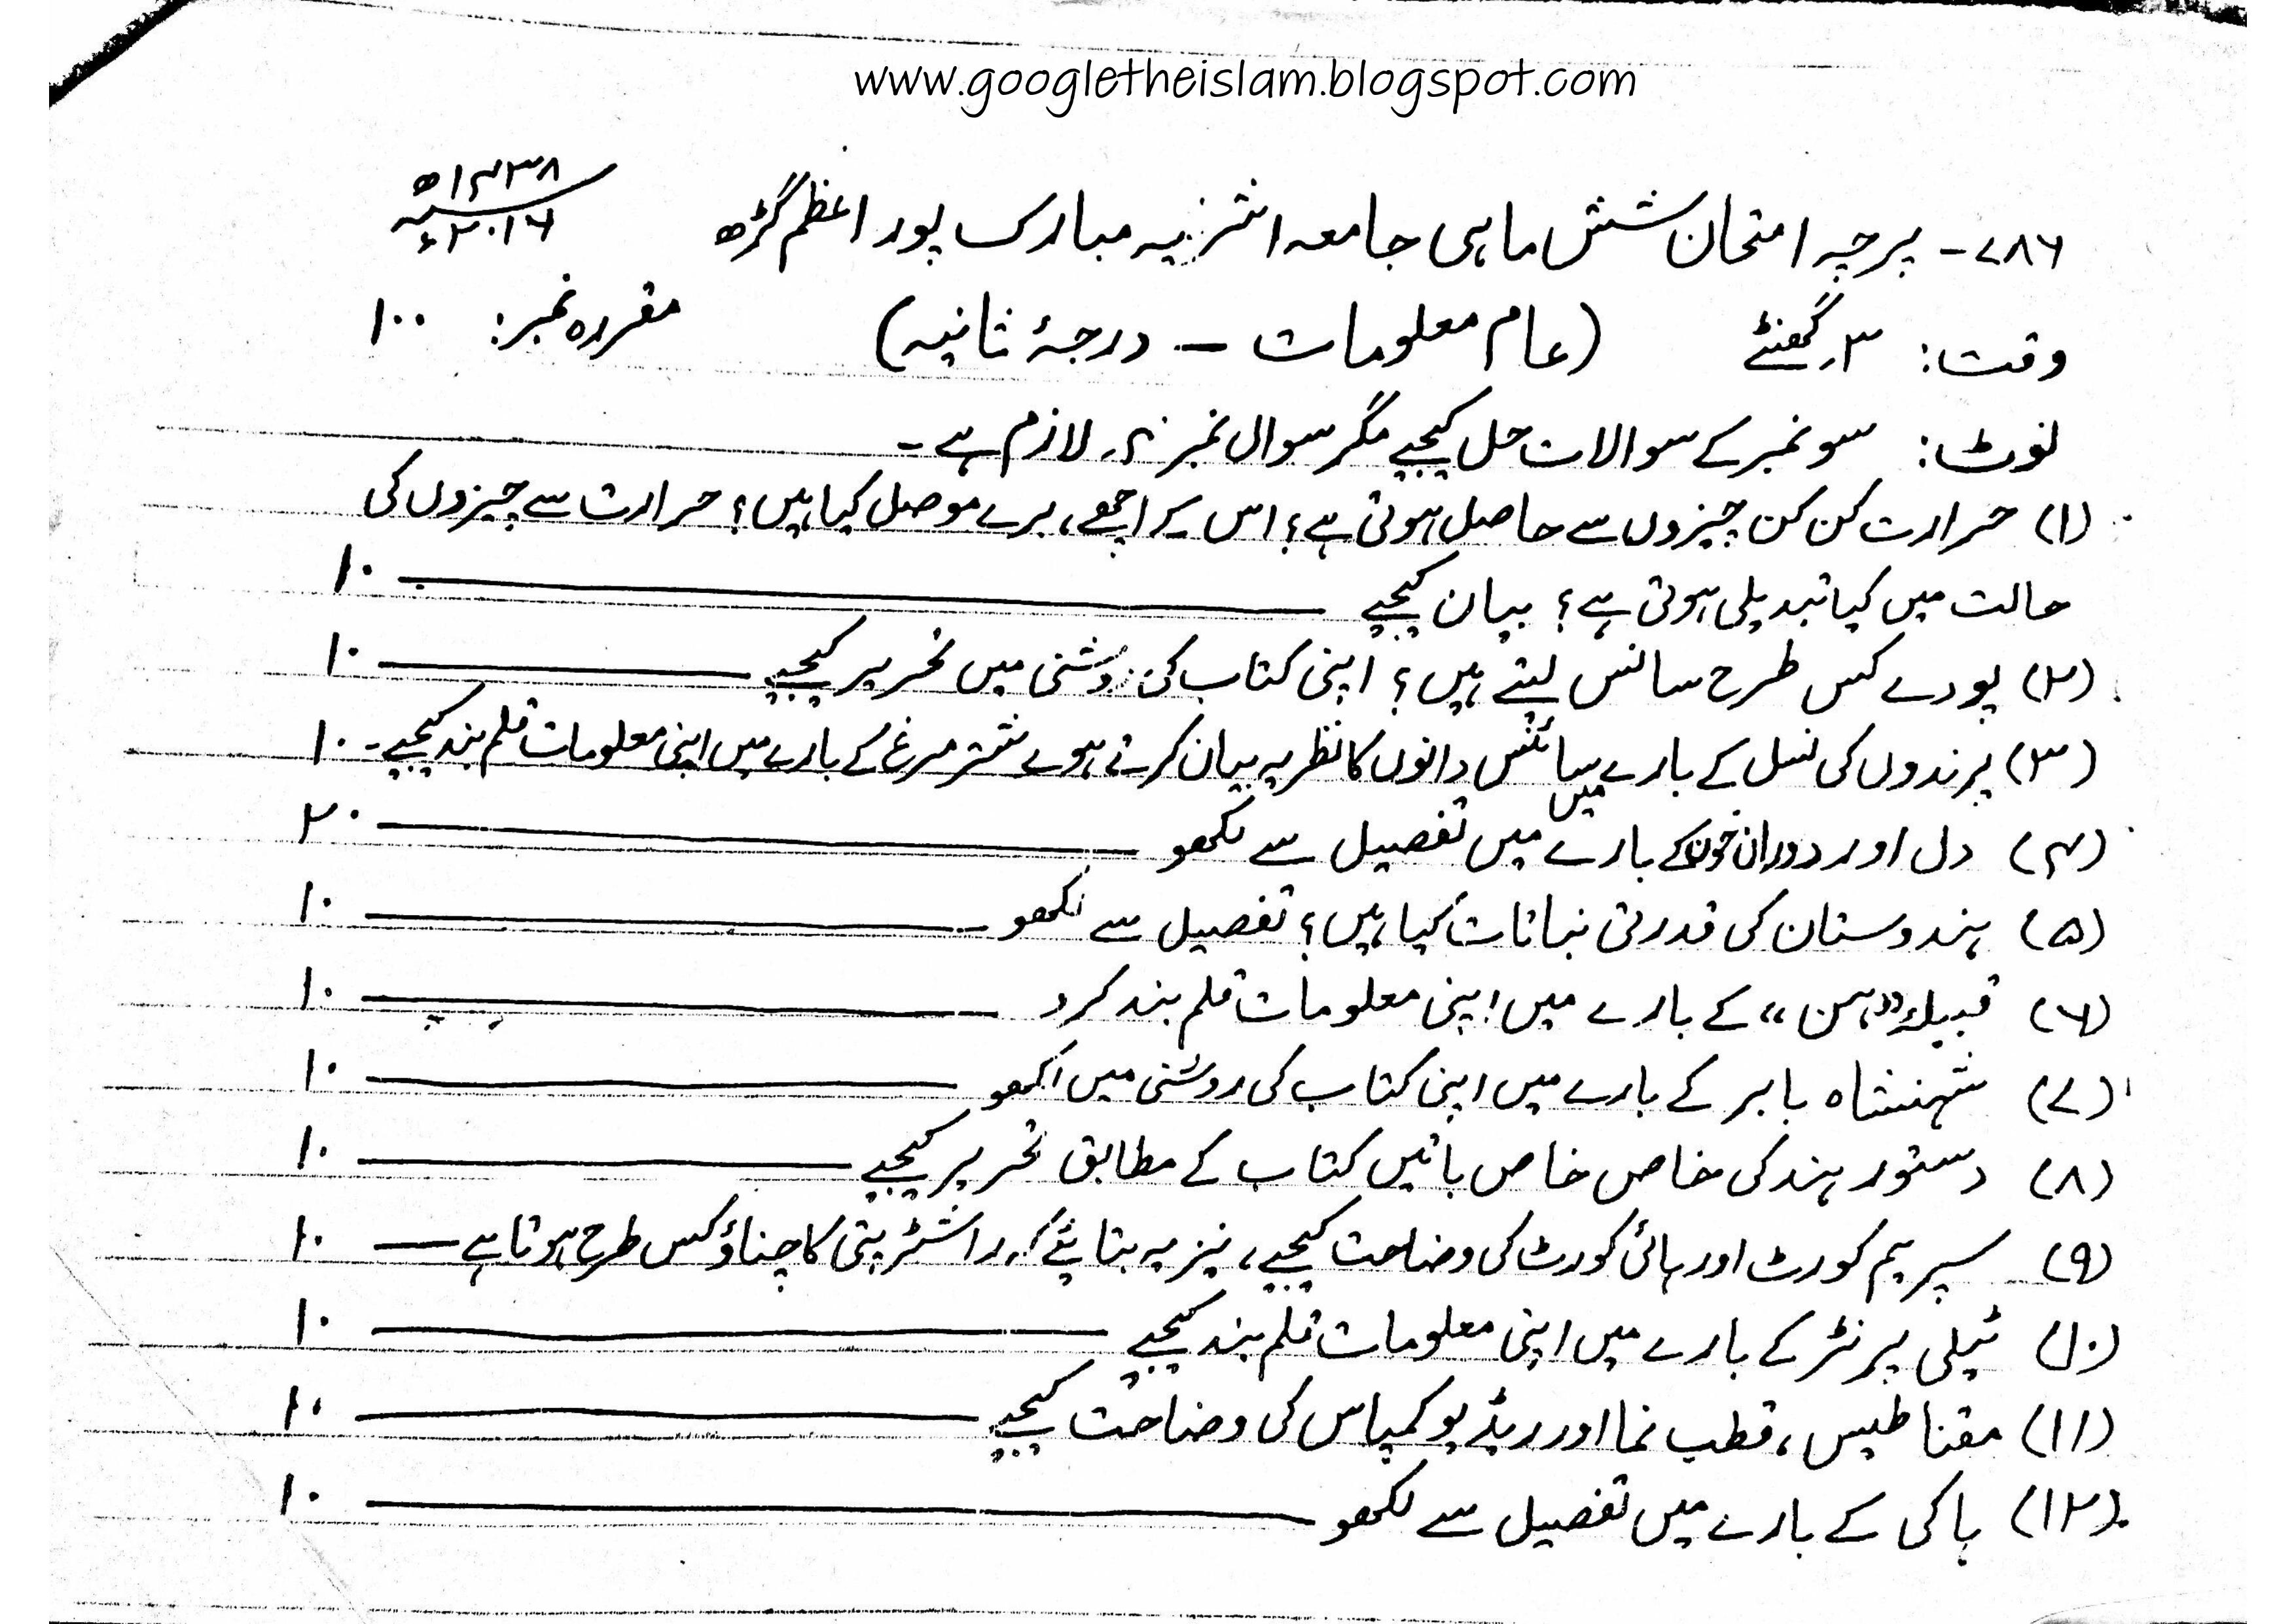 www.googletheislam.blogspot.com
۱۴۳۸ھ
۲۰۱۶ء
۷۸۶- پرچہ امتحان شش ماہی جامعہ اشرفیہ مبارک پور اعظم گڑھ
وقت: ۳؍گھنٹے (عام معلومات – درجۂ ثانیہ) مقررہ نمبر: ۱۰۰
نوٹ: سو نمبر کے سوالات حل کیجیے مگر سوال نمبر ۴؍ لازم ہے۔
(۱) حرارت کن کن چیزوں سے حاصل ہوتی ہے؟ اس کے اچھے، برے موصل کیا ہیں؟ حرارت سے چیزوں کی
حالت میں کیا تبدیلی ہوتی ہے؟ بیان کیجیے ۱۰
(۲) پودے کس طرح سانس لیتے ہیں؟ اپنی کتاب کی روشنی میں تحریر کیجیے ۱۰
(۳) پرندوں کی نسل کے بارے میں سائنس دانوں کا نظریہ بیان کرتے ہوے شتر مرغ کے بارے میں اپنی معلومات قلم بند کیجیے۔ ۱۰
(۴) دل اور دوران خون کے بارے میں تفصیل سے لکھو ۲۰
(۵) ہندوستان کی قدرتی نباتات کیا ہیں؟ تفصیل سے لکھو ۱۰
(۶) قبیلۂ "ہن" کے بارے میں اپنی معلومات قلم بند کرو ۱۰
(۷) شہنشاہ بابر کے بارے میں اپنی کتاب کی روشنی میں لکھو ۱۰
(۸) دستور ہند کی خاص خاص باتیں کتاب کے مطابق تحریر کیجیے ۱۰
(۹) سپریم کورٹ اور ہائی کورٹ کی وضاحت کیجیے، نیز یہ بتائیے کہ راشٹرپتی کا چناؤ کس طرح ہوتا ہے ۱۰
(۱۰) ٹیلی پرنٹر کے بارے میں اپنی معلومات قلم بند کیجیے ۱۰
(۱۱) مقناطیس، قطب نما اور ریڈیو کمپاس کی وضاحت کیجیے ۱۰
(۱۲) ہاکی کے بارے میں تفصیل سے لکھو ۱۰